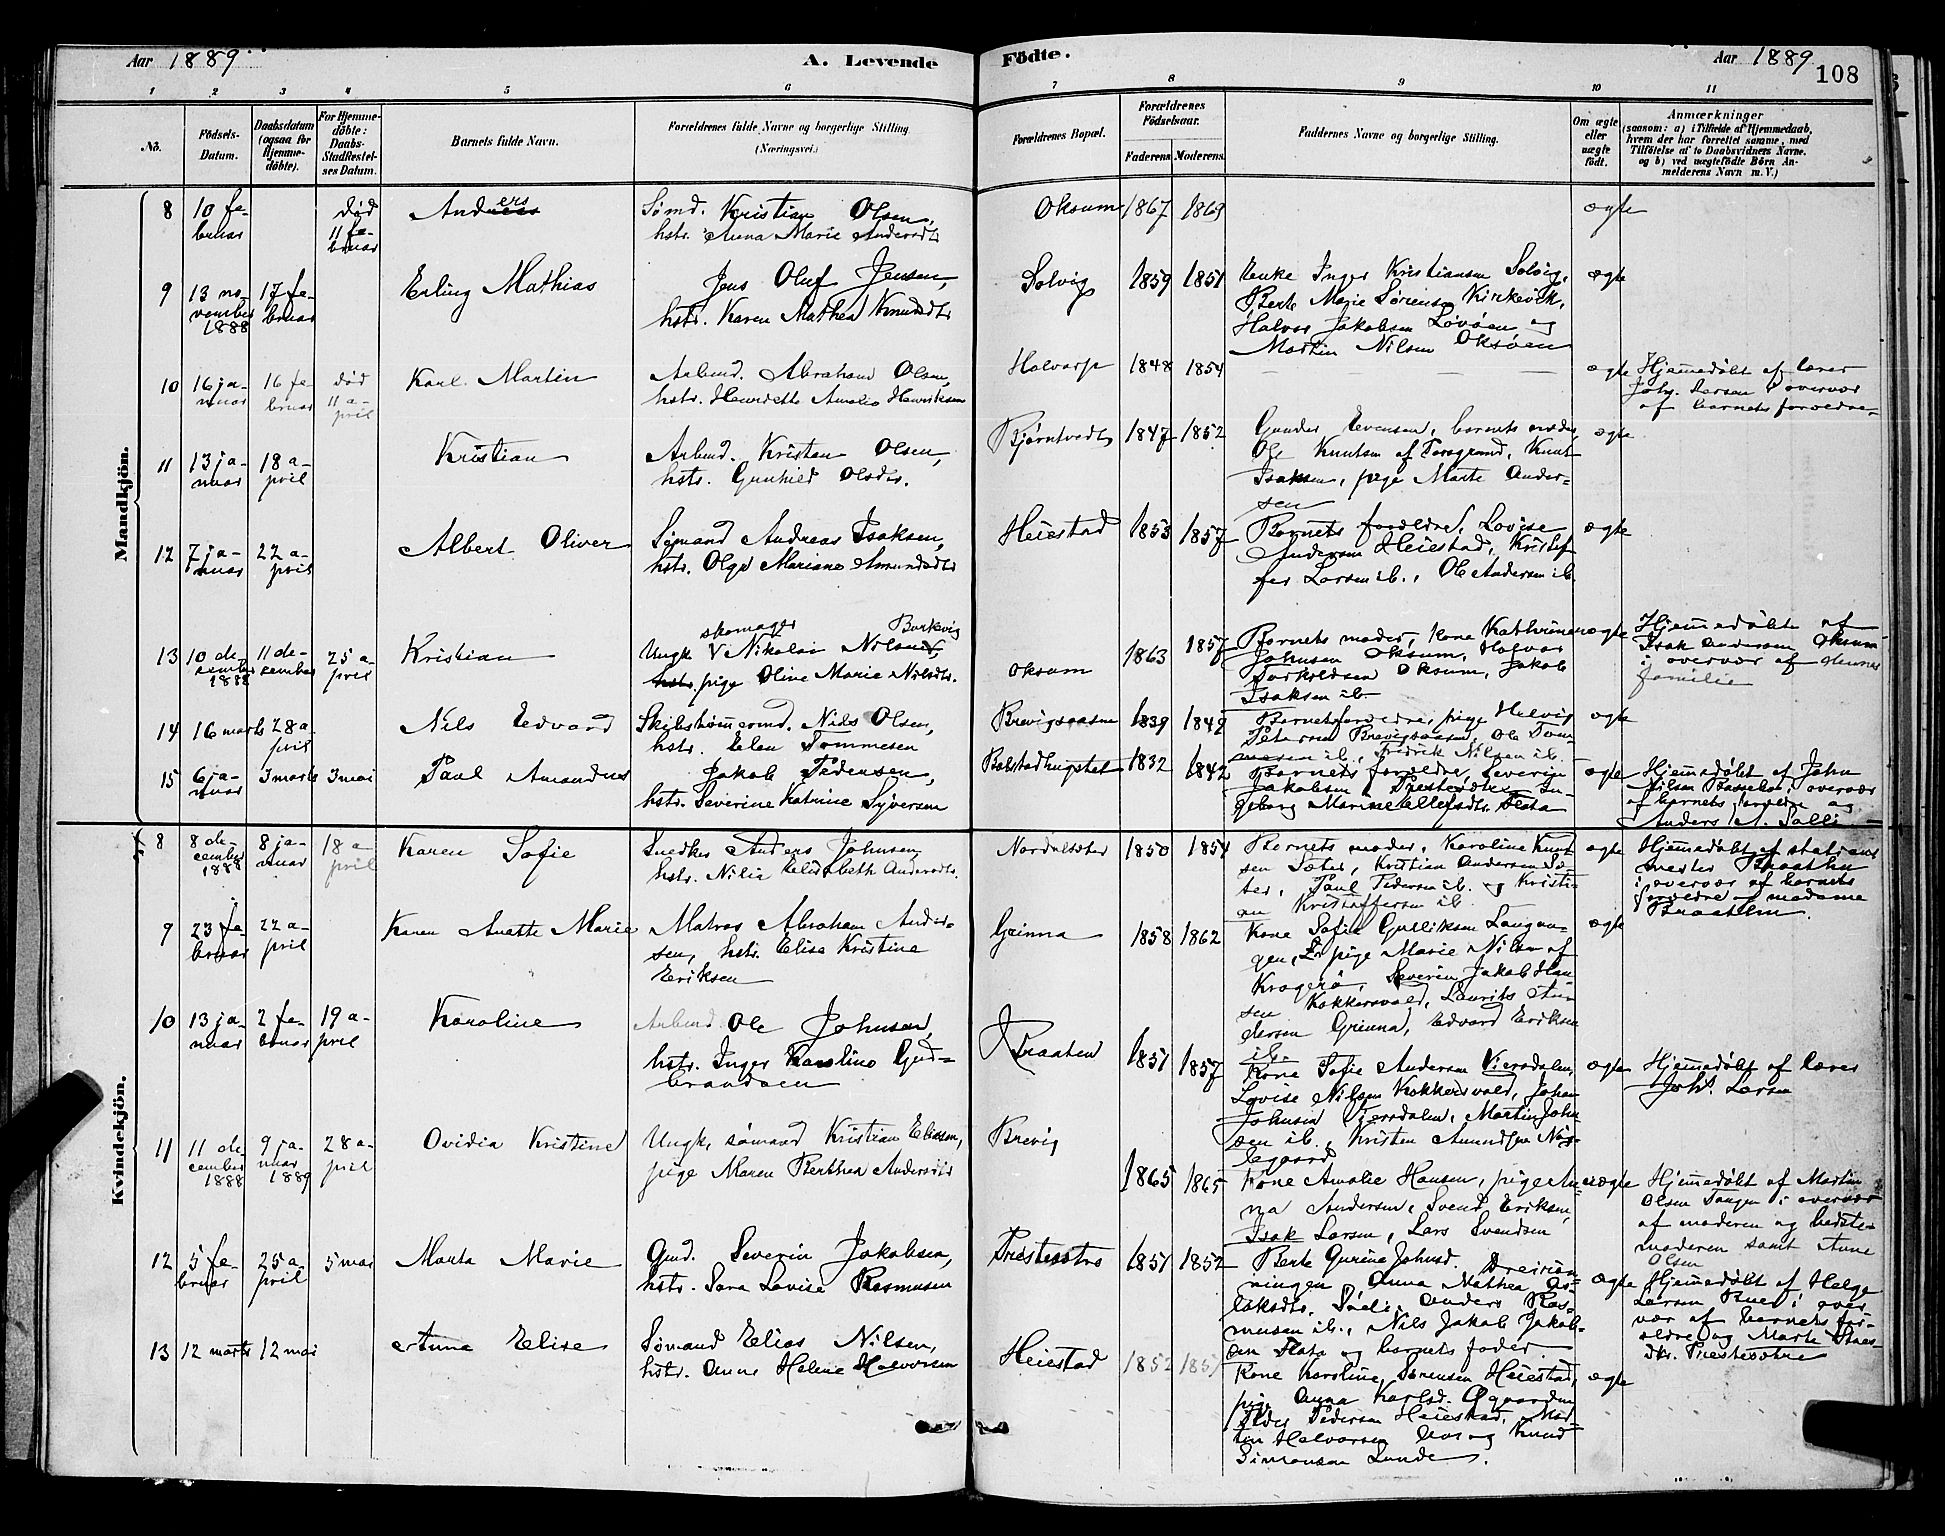 Aar 1889
A. Levende
Fødte.
Aar 1889
108
1 2 3 4 5 6 7 8 9 10 11
No.
Fødsels-
Datum.
Daabsdatum
(ogsaa for
Hjemme-
døbte).
For Hjemme-
døbte:
Daabs-
Stadfæstel-
ses Datum.
Barnets fulde Navn.
Forældrenes fulde Navne og borgerlige Stilling
(Næringsvei.)
Forældrenes Bopæl.
Forældrenes
Fødselsaar.
Faderens Moderens
Faddernes Navne og borgerlige Stilling.
Om ægte
eller
uægte
født.
Anmærkninger
(saasom: a) i Tilfælde af Hjemmedaab,
hvem der har forrettet samme, med
Tilføielse af to Daabsvidners Navne.
og b) ved uægtefødte Børn An-
melderens Navn m. V.)
Mandkjön.
8
10 fe-
bruar
død
11 fe-
bruar
Anders
Sømd. Kristian Olsen,
hstr. Anna Marie Andersdt
Oksum
1867
1869
ægte
9
13 no-
vember
1888
17 fe-
bruar
Erling Mathias
Jens Oluf Jensen,
hstr. Karen Mathea Knudsdt
Solvig
1859
1851
Enke Inger Kristiansen Solvig,
Berte Marie Sørensen Kirkevik,
Halvor Jakobsen Løvøen og
Martin Nilsen Oksøen
ægte
10
16 ja-
nuar
16 fe
bruar
død
11 a-
pril
Karl Martin
Arbmd. Abraham Olsen,
hstr. Henriette Amalie Henriksen
Halvarp
1848
1854
ægte
Hjemmedøbt af lærer
Johs. Larsen i overvær
af barnets forældre
11
13 ja-
nuar
18 a-
pril
Kristian
Arbmd. Kristen Olsen,
hstr. Gunhild Olsdr.
Bjørntvedt
1847
1852
Gunder Evensen, barnets moder,
Ole Knutsen af Porsgrund, Knut
Isaksen, pige Marte Ander-
sen
ægte
12
7 ja-
nuar
22 a-
pril
Albert Oliver
Sømand Andreas Isaksen,
hstr. Olga Mariane Amundsdt
Heiestad
1853
1857
Barnets forældre, Lovise
Andersen Heiestad, Kristof
fer Larsen ib., Ole Andersen ib.
ægte
13
10 de-
cember
1888
11 de-
cember
25 a-
pril
Kristian
skomager Barkevig
Ungk. V Nikolai Nilsen,
hstr. pige Oline Marie Nilsdt.
Oksum
1863
1857
Barnets moder, kone Kathrine
Johnsen Oksum, Halvor
Torkildsen Oksum, Jakob
Isaksen ib.
uægte
Hjemmedøbt af
Isak Andersen Oksum
i overvær af dennes
familie
14
16 marts
28 a-
pril
Nils Edvard
Skibstømmermd. Nils Olsen,
hstr. Elen Tommesen
Brevigsaasen
1839
1849
Barnets forældre, pige Helvig
Petersen Brevigsaasen, Ole Tom-
mesen ib., Fredrik Nilsen ib.
ægte
15
6 ja-
nuar
3 marts
3 mai
Paul Amandus
Jakob Pedersen,
hstr. Severine Katrine Syversen
1832
1842
Barnets forældre, Severin
Jakobsen Prestesætre, In-
geborg Marine Ellefsdtr. Flata
ægte
Hjemmedøbt af John
Nilsen i overvær
af barnets forældre og
Anders A. Salli
Kvindekjön.
8
8 de-
cember
1888
8 ja-
nuar
18 a-
pril
Karen Sofie
Snedker Anders Johnsen,
hstr. Nilia Elisabeth Andersdtr.
Nordalsæter
1850
1854
Barnets moder, Karoline Knut
sen Sæter, Kristian Andersen Sæ-
ter, Paul Pedersen ib. og Kristi-
an Kristoffersen ib.
ægte
Hjemmedøbt af stations
mester Braathen
i overvær af barnets
forældre og madame
Braathen.
9
23 fe
bruar
22 a-
pril
Karen Anette Marie
Matros Abraham Ander-
sen, hstr. Elise Kristine
Eriksen
Grinna
1858
1862
Kone Sofie Gulliksen Langan-
gen, pige Marie Nilsen af
Kragerø, Severin Jakob Han-
sen Kokkersvold, Laurits An-
dersen Grinna, Edvard Eriksen
ib.
ægte
10
13 ja-
nuar
2 fe-
bruar
19 a-
pril
Karoline
Arbmd. Ole Johnsen,
hstr. Inger Karoline Gud-
brandsen
Braaten
1851
1857
Kone Sofie Andersen Viersdalen,
Lovise Nilsen Kokkersvold, Johan
Johnsen Viersdalen, Martin John
sen ib., Kristen Amundsen Nor-
legaard
ægte
Hjemmedøbt af lærer
Johs. Larsen
11
11 de-
cember
1888
9 ja-
nuar
1889
28 a-
pril
Ovidia Kristine
Ungk. sømand Kristian Eliasen,
pige Maren Berthea Andersdt
Brevig
1865
1865
Kone Amalie Hansen, pige An-
na Andersen, Svend Eriksen,
Isak Larsen, Lars Svendsen
uægte
Hjemmedøbt af Martin
Olsen Tangen i overvær
af moderen og bedste-
moderen samt Anne
Olsen
12
5 fe-
bruar
25 a-
pril
5 mai
Marta Marie
Gmd. Severin Jakobsen,
hstr. Sara Lovise Rasmusen
Prestesætre
1851
1852
Berte Gurine Johnsd.
ningen Anna Mathea As-
laksdtr. Sølie, Anders Ras-
musen ib., Nils Jakob Jakob-
sen Flata og barnets fader
ægte
Hjemmedøbt af Helge
Larsen Buer i over
vær af barnets for-
ældre og Marte
dtr. Prestesætre
13
12 marts
12 mai
Anna Elise
Sømand Elias Nilsen,
hstr. Anne Helene Halvorsen
Heiestad
1852
1857
Kone Karoline Sørensen Heiestad,
pige Anna Karlsd.
Peder Pedersen Heiestad, Mar
tin Halvorsen og Knud
Simonsen Lunde.
ægte